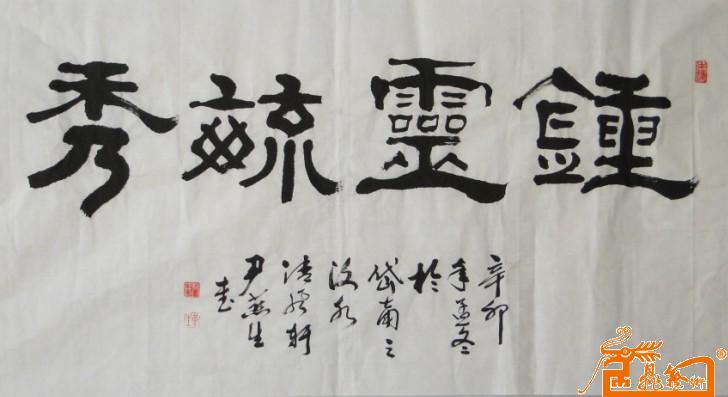 鍾靈毓秀
辛卯
年孟冬
於
岱南之
汶水
軒
尹燕生
書